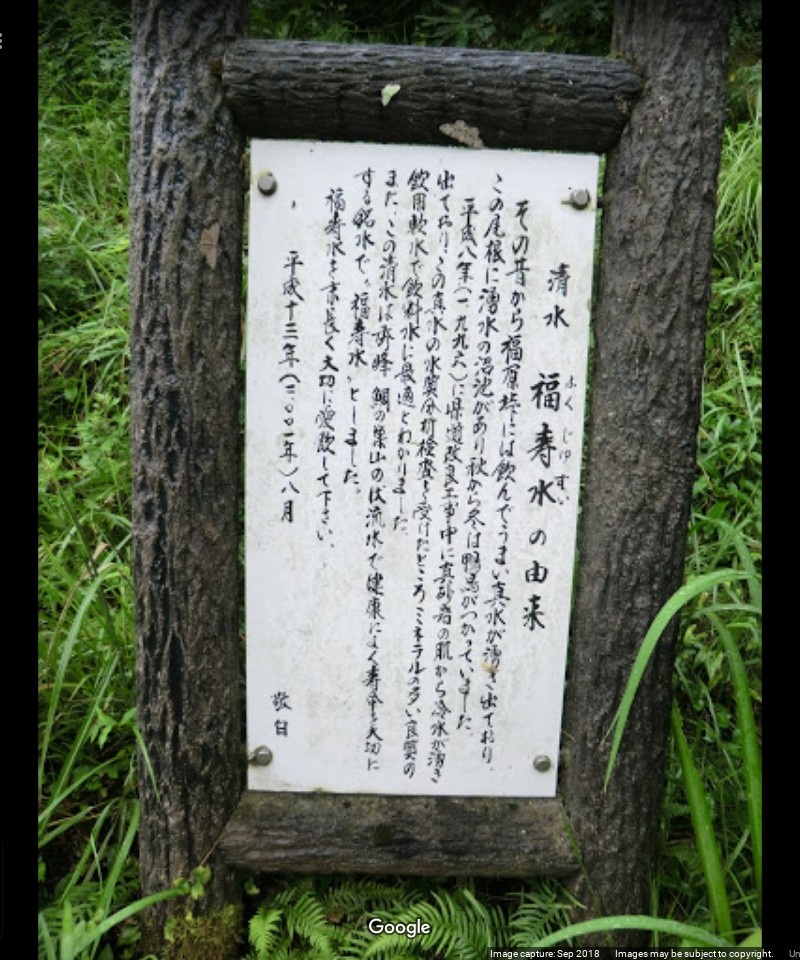 清水 福寿水の由来
ふくじゅすい
その昔から福原峠には飲んでうまい真水が湧き出ており、
この尾根に湧水の沼池があり秋から冬は鴨鳥がつかっていました。
平成八年(一九九六)に県道改良工事中に真砂岩の肌から冷水が湧き
出ており、この真水の水質分析検査を受けたところミネラルの多い良質の
飲用軟水で飲料水に最適とわかりました。
また、この清水は 鯛の巣山の伏流水で健康によく寿命を大切に
する銘水で、福寿水、としました。
福寿水を末長く大切に愛飲して下さい。
平成十三年(二〇〇一年)八月
敬白
Google
Image capture: Sep 2018 Images may be subject to copyright.